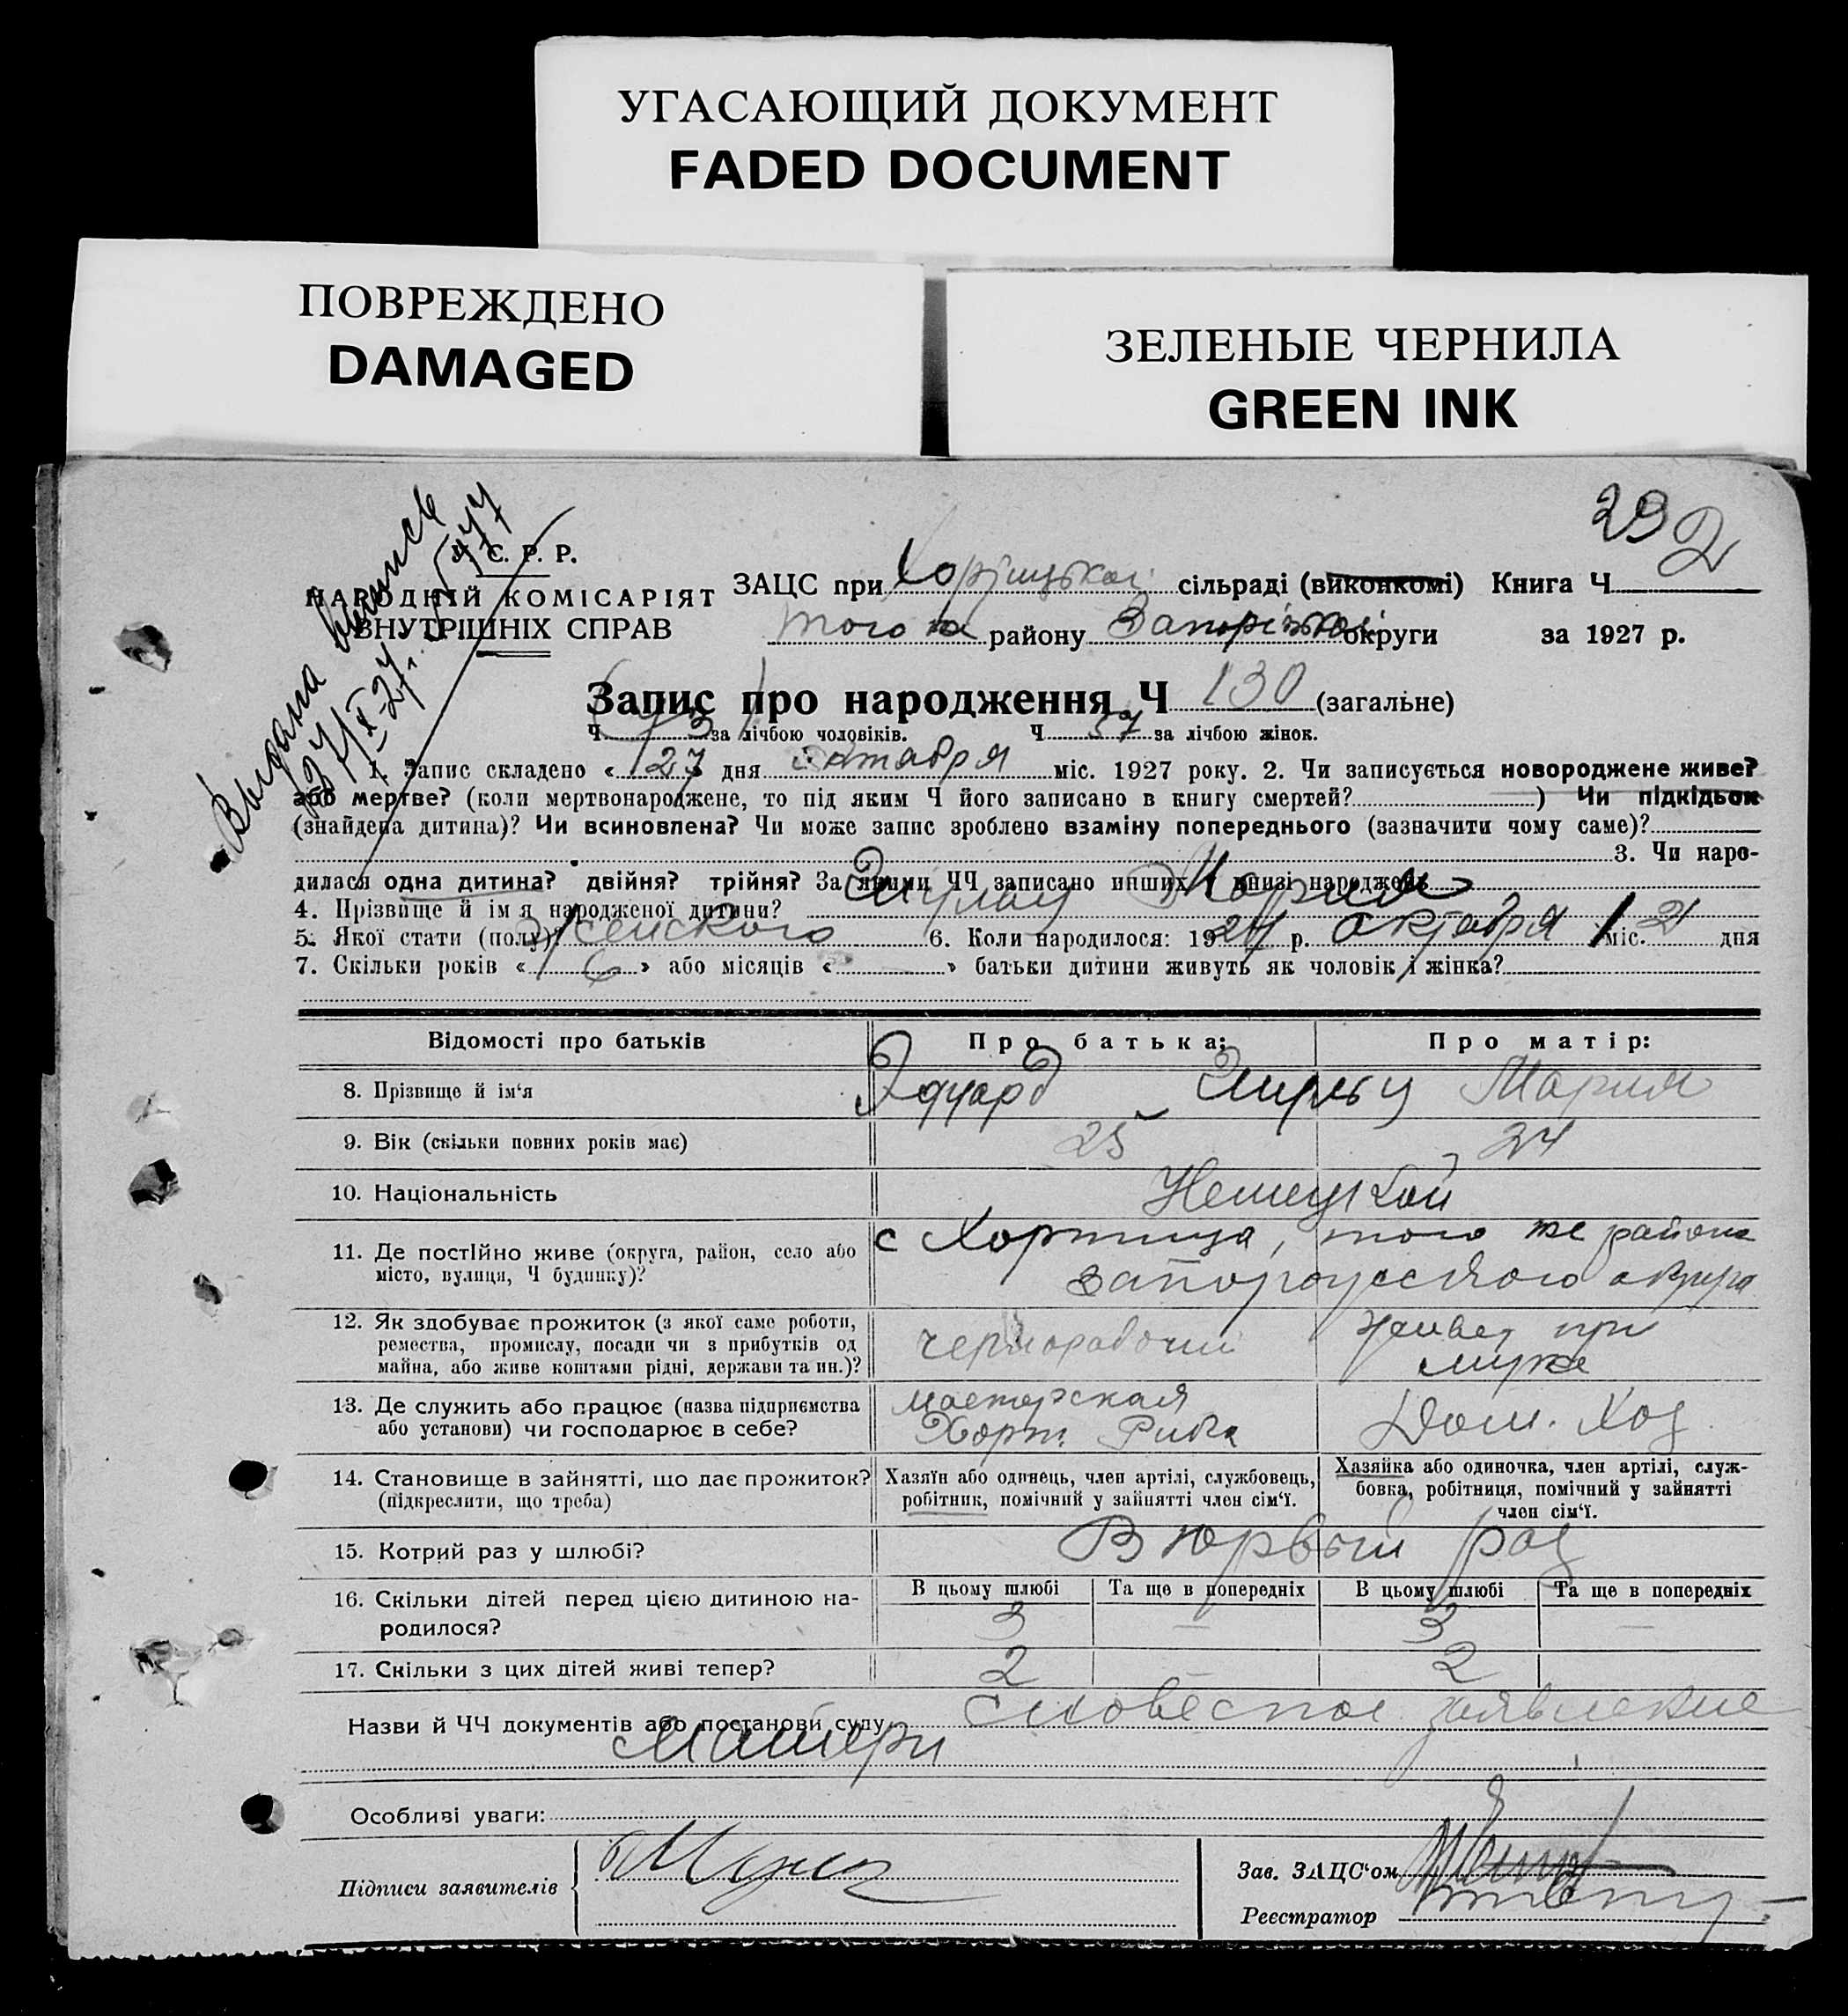 УГАСАЮЩИЙ ДОКУМЕНТ
FADED DOCUMENT
ПОВРЕЖДЕНО
DAMAGED
ЗЕЛЕНЫЕ ЧЕРНИЛА
GREEN INK
29 2
Выдана выпись
У. С. Р. Р.
НАРОДНІЙ КОМІСАРІЯТ
ВНУТРІШНІХ СПРАВ
ЗАЦС при Хортицькой сільраді (виконкомі) Книга Ч
того ж району Запорізкой округи за 1927 р.
Запис про народження Ч 130 (загальне)
Ч 73 за лічбою чоловіків. Ч 57 за лічбою жінок.
1. Запис складено « 27 » дня октября міс. 1927 року. 2. Чи записується новороджене живе?
або мертве? (коли мертвонароджене, то під яким Ч його записано в книгу смертей? ) Чи підкідьок
(знайдена дитина)? Чи всиновлена? Чи може запис зроблено взаміну попереднього (зазначити чому саме)?
3. Чи наро-
дилася одна дитина? двійня? трійня? За якими ЧЧ записано инших у книзі народжень
4. Прізвище й ім'я народженої дитини? Мария
5. Якої стати (полу)? Женского 6. Коли народилося: 1927 р. октября міс. 21 дня
7. Скільки років « 6 » або місяців « » батьки дитини живуть як чоловік і жінка?
Відомості про батьків Про батька: Про матір:
8. Прізвище й ім'я Эдуард Мария
9. Вік (скільки повних років має) 25 24
10. Національність Немецкой
11. Де постійно живе (округа, район, село або
місто, вулиця, Ч будинку)?
с Хортица, того же района
Запорожского округа
12. Як здобуває прожиток (з якої саме роботи,
ремества, промислу, посади чи з прибутків од
майна, або живе коштами рідні, держави та ин.)?
чернорабочий
живет при
муже
13. Де служить або працює (назва підприємства
або установи) чи господарює в себе?
мастерская
Хорт. Рика
Дом. Хоз
14. Становище в зайнятті, що дає прожиток?
(підкреслити, що треба)
Хазяїн або одинець, член артілі, службовець,
робітник, помічний у зайнятті член сім'ї.
Хазяйка або одиночка, член артілі, служ-
бовка, робітниця, помічний у зайнятті
член сім'ї.
15. Котрий раз у шлюбі? В первый раз
16. Скільки дітей перед цією дитиною на-
родилося?
В цьому шлюбі Та ще в попередніх В цьому шлюбі Та ще в попередніх
3 — 3 —
17. Скільки з цих дітей живі тепер? 2 — 2
Назви й ЧЧ документів або постанови суду словесное заявление
матери
Особливі уваги:
Підписи заявителів
Зав. ЗАЦС'ом
Реєстратор